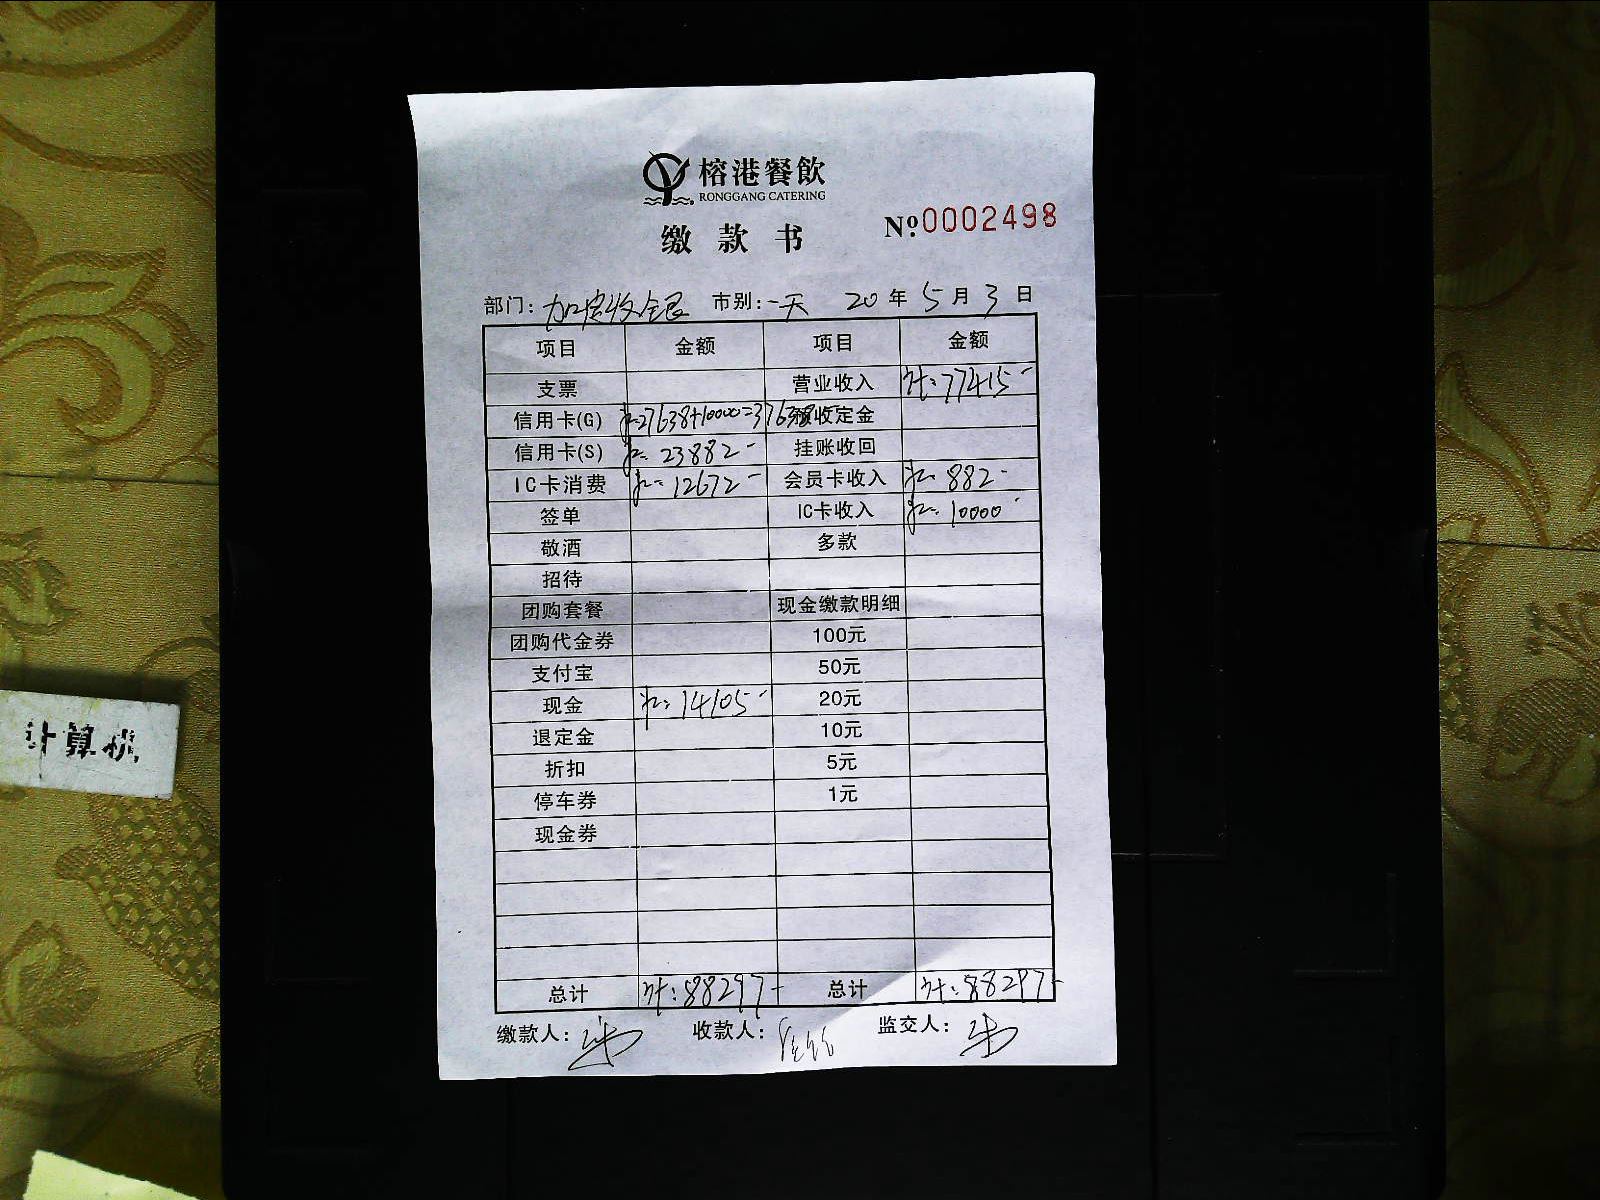 榕港餐飲
RONGGANG CATERING
缴款书
№0002498
部门: 加宏收银 市别: 一天 20 年 5 月 3 日
项目 金额 项目 金额
支票 营业收入 计:77415-
信用卡(G) 27638+10000=37638 预收定金
信用卡(S) 23882- 挂账收回
IC卡消费 12672- 会员卡收入 882-
签单 IC卡收入 10000-
敬酒 多款
招待
团购套餐 现金缴款明细
团购代金券 100元
支付宝 50元
现金 14105- 20元
退定金 10元
折扣 5元
停车券 1元
现金券
总计 计:88297- 总计 计:88297-
缴款人: 收款人: 监交人:
计算机